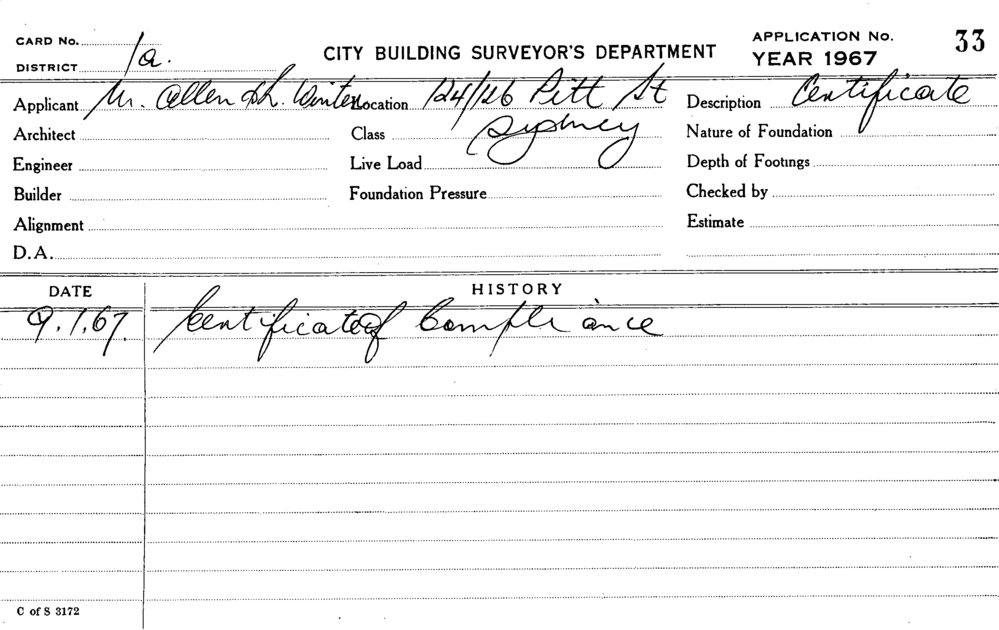 CARD No.
DISTRICT 1a.
CITY BUILDING SURVEYOR'S DEPARTMENT
APPLICATION No. 33
YEAR 1967
Applicant Mr. Allen Winter Location 124/126 Pitt St Description Certificate
Architect Class Sydney Nature of Foundation
Engineer Live Load Depth of Footings
Builder Foundation Pressure Checked by
Alignment Estimate
D.A.
DATE HISTORY
9.1.67. Certificate of Compliance
C of S 3172